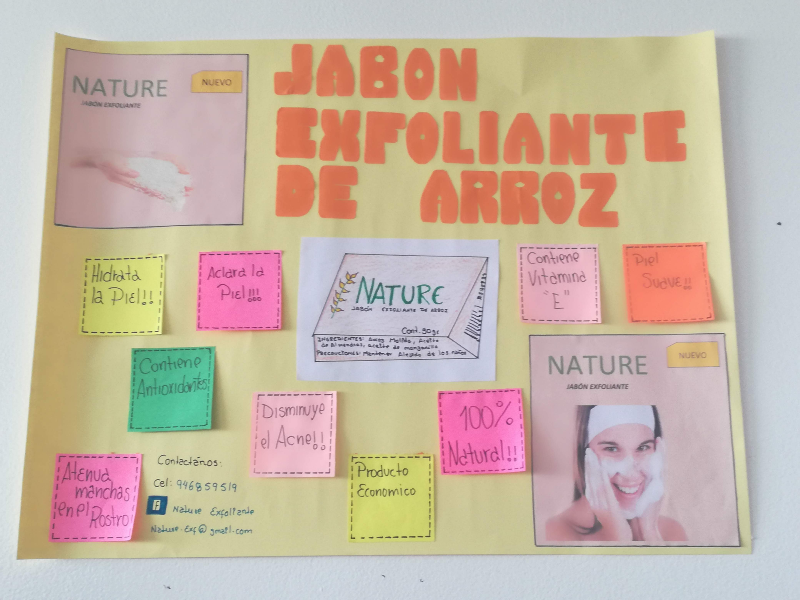 NATURE
NUEVO
JABÓN EXFOLIANTE
JABON
EXFOLIANTE
DE ARROZ
Hidrata
la Piel!!
Aclara la
Piel!!!
NATURE
JABÓN EXFOLIANTE DE ARROZ
Cont. 90gr
INGREDIENTES: Arroz Molido, Aceite
de Almendras, aceite de manzanilla
Precauciones: Mantener Alejado de los niños
Contiene
Vitamina
"E"
Piel
Suave!!
Contiene
Antioxidantes
Disminuye
el Acne!!
100%
Natural!!
NATURE
NUEVO
JABÓN EXFOLIANTE
Atenua
manchas
en el
Rostro
Contactános:
Cel: 946859519
f Nature Exfoliante
Nature.Exf@gmail.com
Producto
Economico